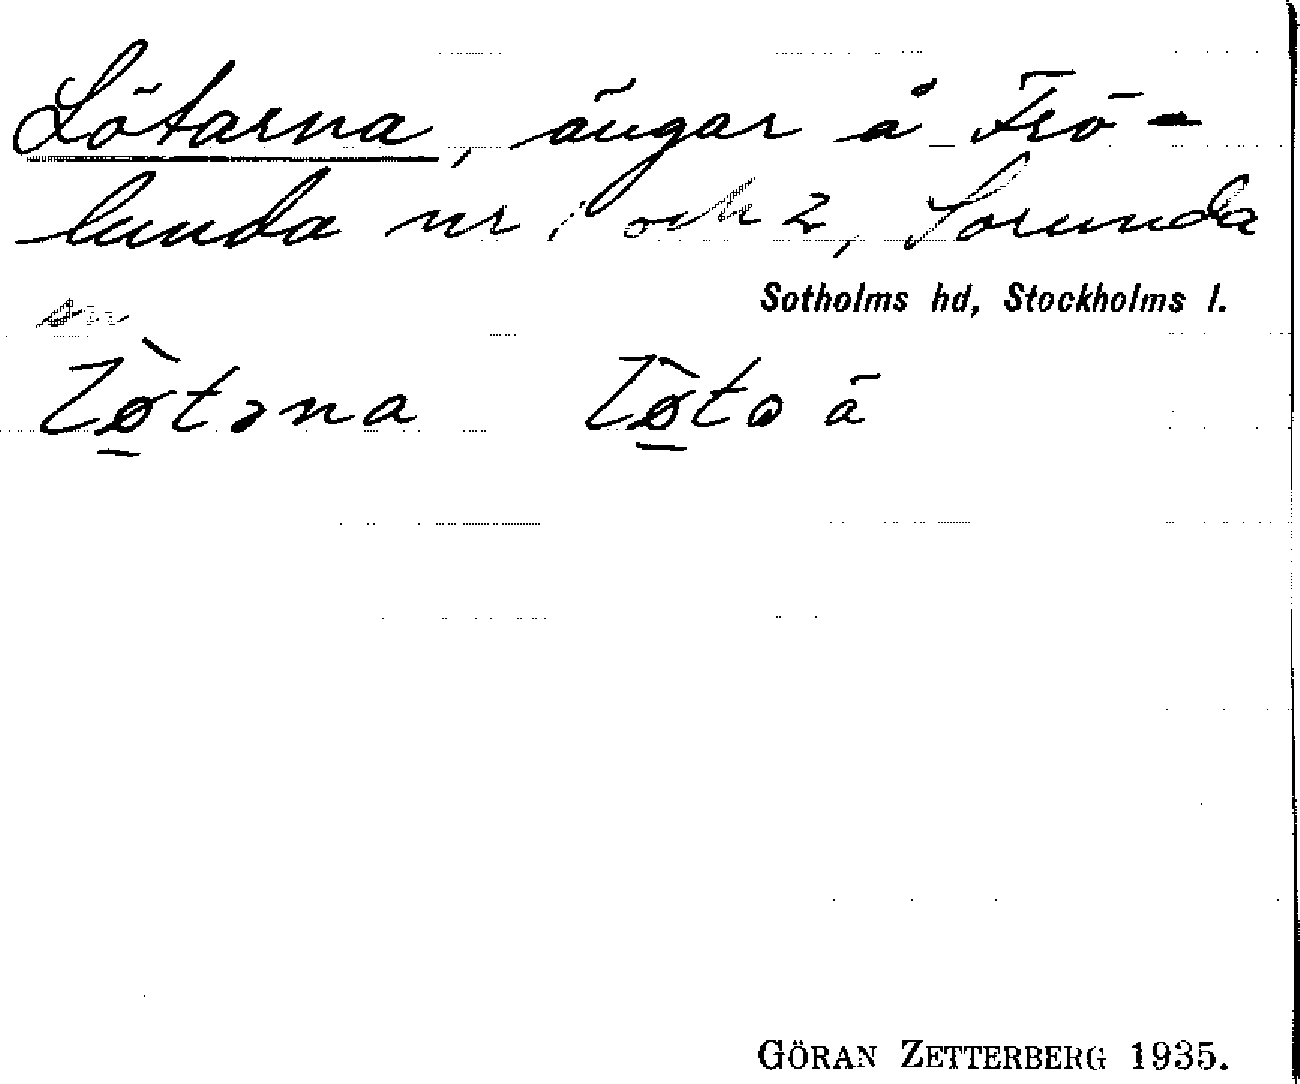 Lötarna, ängar å Frö-
lunda nr 1 och 2, Sorunda
sn
Sotholms hd, Stockholms l.
lø̠̀təna lø̠̀tə ä
GÖRAN ZETTERBERG 1935.